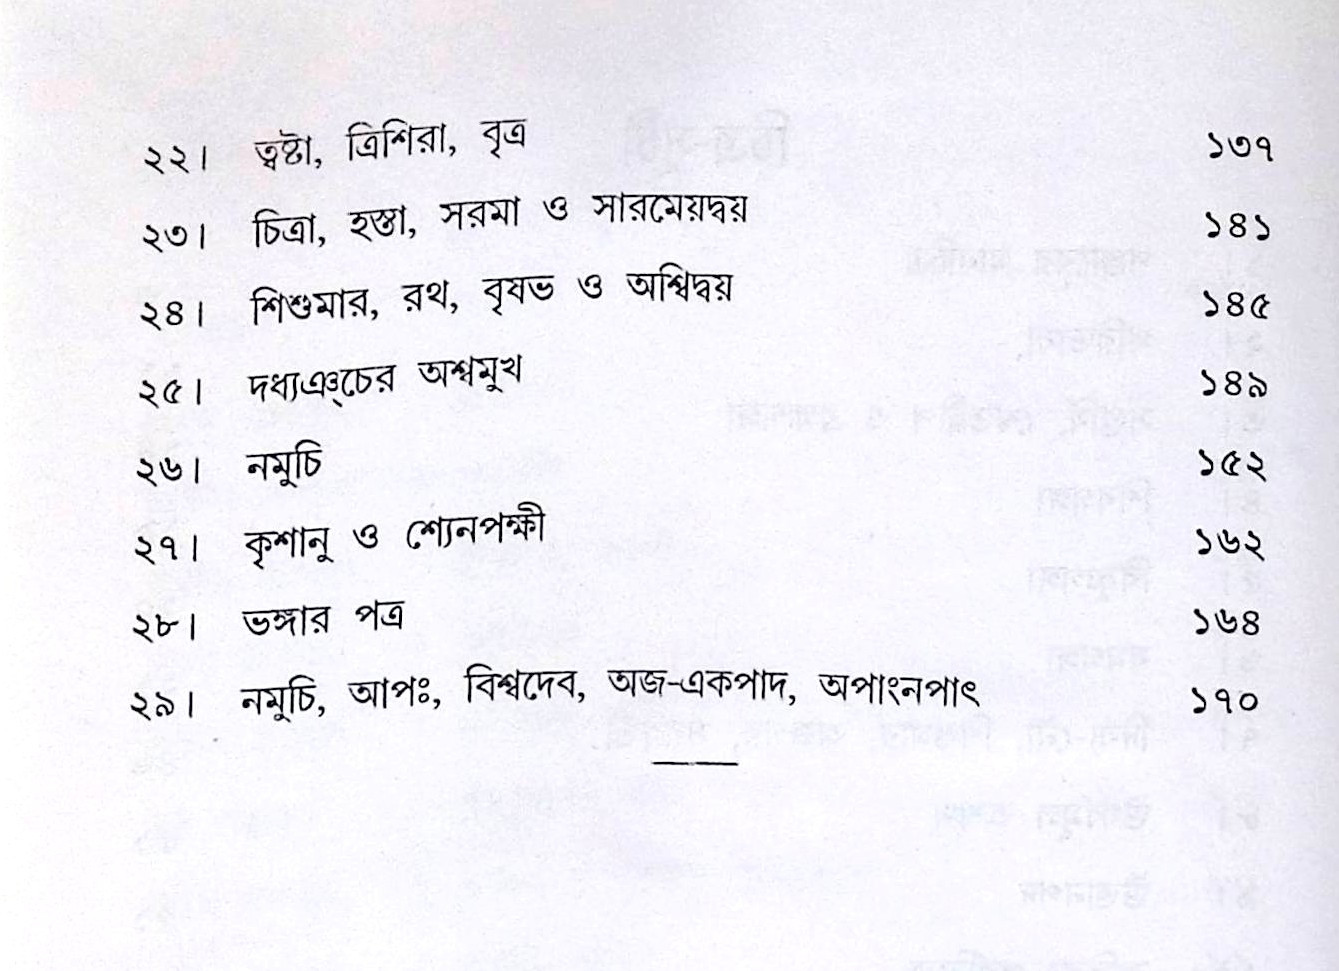 ২২। ত্বষ্টা, ত্রিশিরা, বৃত্র ১৩৭
২৩। চিত্রা, হস্তা, সরমা ও সারমেয়দ্বয় ১৪১
২৪। শিশুমার, রথ, বৃষভ ও অশ্বিদ্বয় ১৪৫
২৫। দধ্যঞ্চের অশ্বমুখ ১৪৯
২৬। নমুচি ১৫২
২৭। কৃশানু ও শ্যেনপক্ষী ১৬২
২৮। ভঙ্গার পত্র ১৬৪
২৯। নমুচি, আপঃ, বিশ্বদেব, অজ-একপাদ, অপাংনপাৎ ১৭০